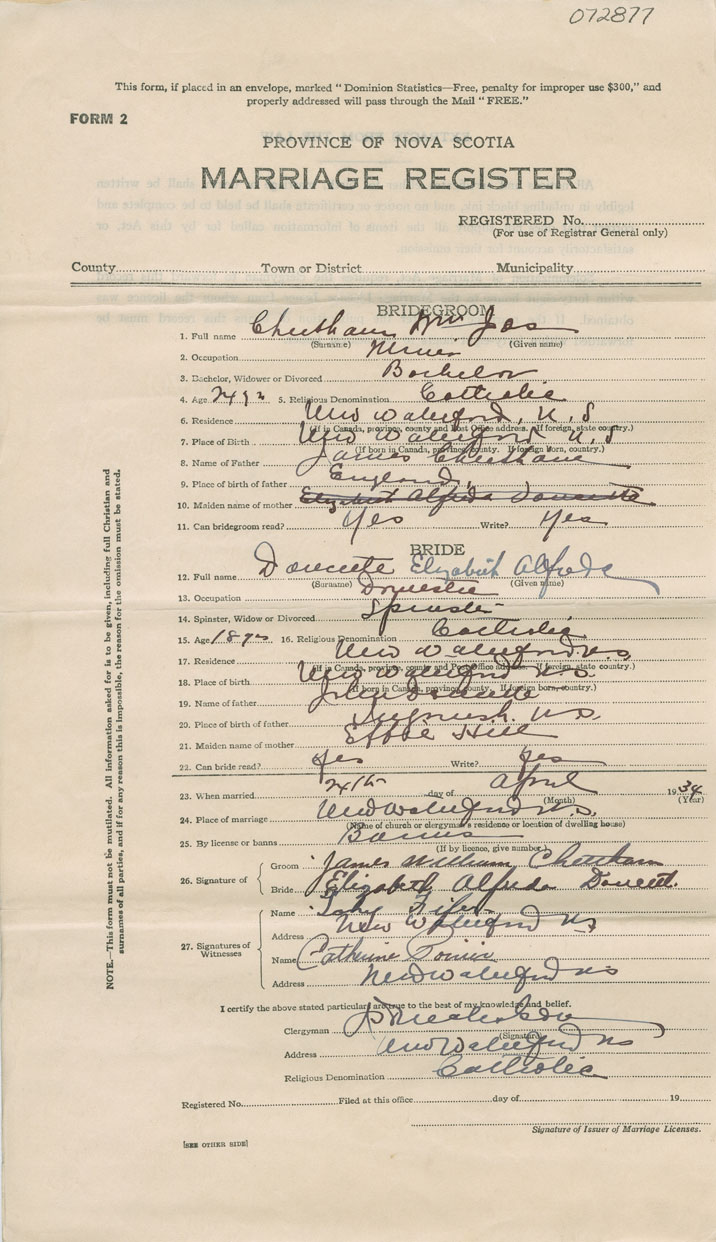 072877
This form, if placed in an envelope, marked "Dominion Statistics—Free, penalty for improper use $300," and
properly addressed will pass through the Mail "FREE."
FORM 2
PROVINCE OF NOVA SCOTIA
MARRIAGE REGISTER
REGISTERED No.
(For use of Registrar General only)
County Town or District Municipality
BRIDEGROOM
1. Full name Cheetham Wm Jas
(Surname) (Given name)
2. Occupation Miner
3. Bachelor, Widower or Divorced Bachelor
4. Age 24 yrs 5. Religious Denomination Catholic
6. Residence New Waterford, N. S
(If in Canada, province, county and Post Office address. If foreign, state country.)
7. Place of Birth New Waterford N. S
(If born in Canada, province, county. If foreign born, country.)
8. Name of Father James Cheetham
9. Place of birth of father England
10. Maiden name of mother Elizabeth Alfreda Doucette
11. Can bridegroom read? Yes Write? Yes
BRIDE
12. Full name Doucette Elizabeth Alfreda
(Surname) (Given name)
13. Occupation Domestic
14. Spinster, Widow or Divorced Spinster
15. Age 18 yrs 16. Religious Denomination Catholic
17. Residence New Waterford N.S.
(If in Canada, province, county and Post Office address. If foreign, state country.)
18. Place of birth New Waterford N.S.
(If born in Canada, province, county. If foreign born, country.)
19. Name of father Doucette
20. Place of birth of father N.S.
21. Maiden name of mother Effie Hill
22. Can bride read? Yes Write? Yes
23. When married 24th day of April 1934
(Month) (Year)
24. Place of marriage New Waterford N.S.
(Name of church or clergyman's residence or location of dwelling house)
25. By license or banns Banns
(If by licence, give number)
26. Signature of
Groom James William Cheetham
Bride Elizabeth Alfreda Doucet.
27. Signatures of Witnesses
Name
Address New Waterford NS
Name Catherine Poirier
Address New Waterford NS
I certify the above stated particulars are true to the best of my knowledge and belief.
Clergyman
(Signature)
Address New Waterford NS
Religious Denomination Catholic
Registered No. Filed at this office day of 19
Signature of Issuer of Marriage Licenses.
[SEE OTHER SIDE]
NOTE.—This form must not be mutilated. All information asked for is to be given, including full Christian and
surnames of all parties, and if for any reason this is impossible, the reason for the omission must be stated.